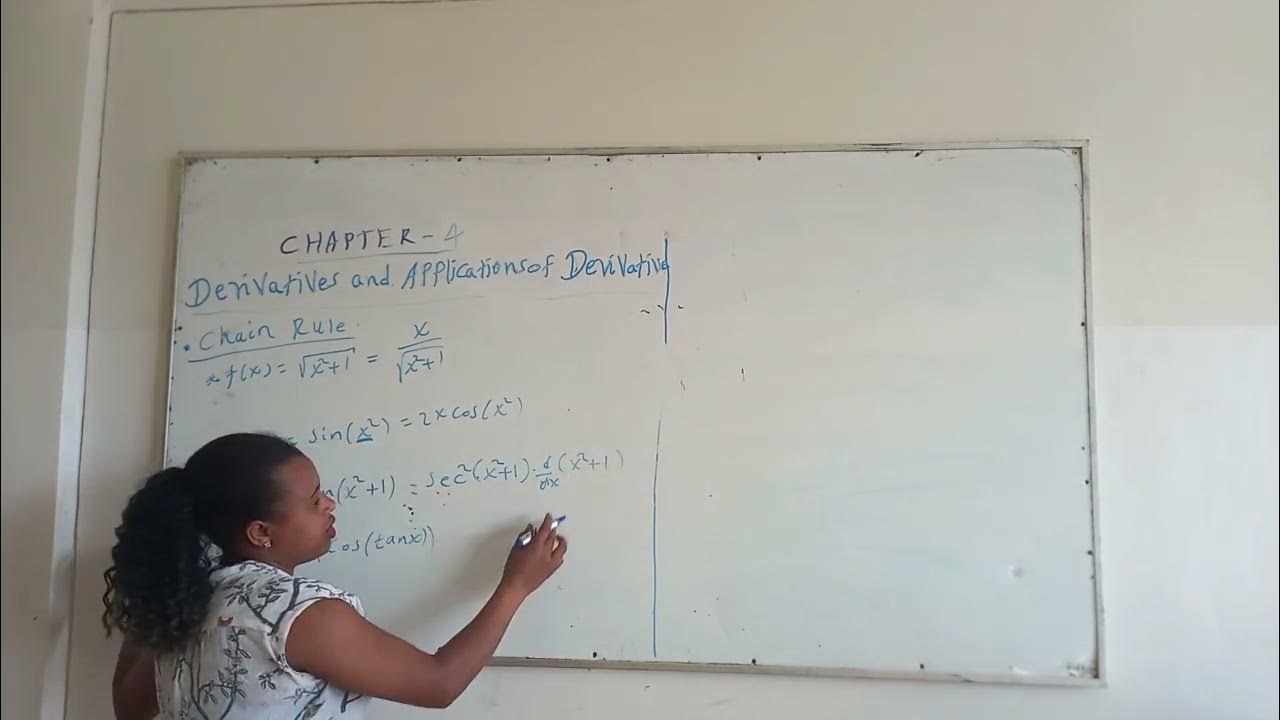 CHAPTER - 4
Derivatives and Applications of Derivative
• Chain Rule.
* f(x) = √(x²+1) = x/√(x²+1)
= sin(x²) = 2x cos(x²)
n(x²+1) = sec²(x²+1) · d/dx (x²+1)
cos(tanx))